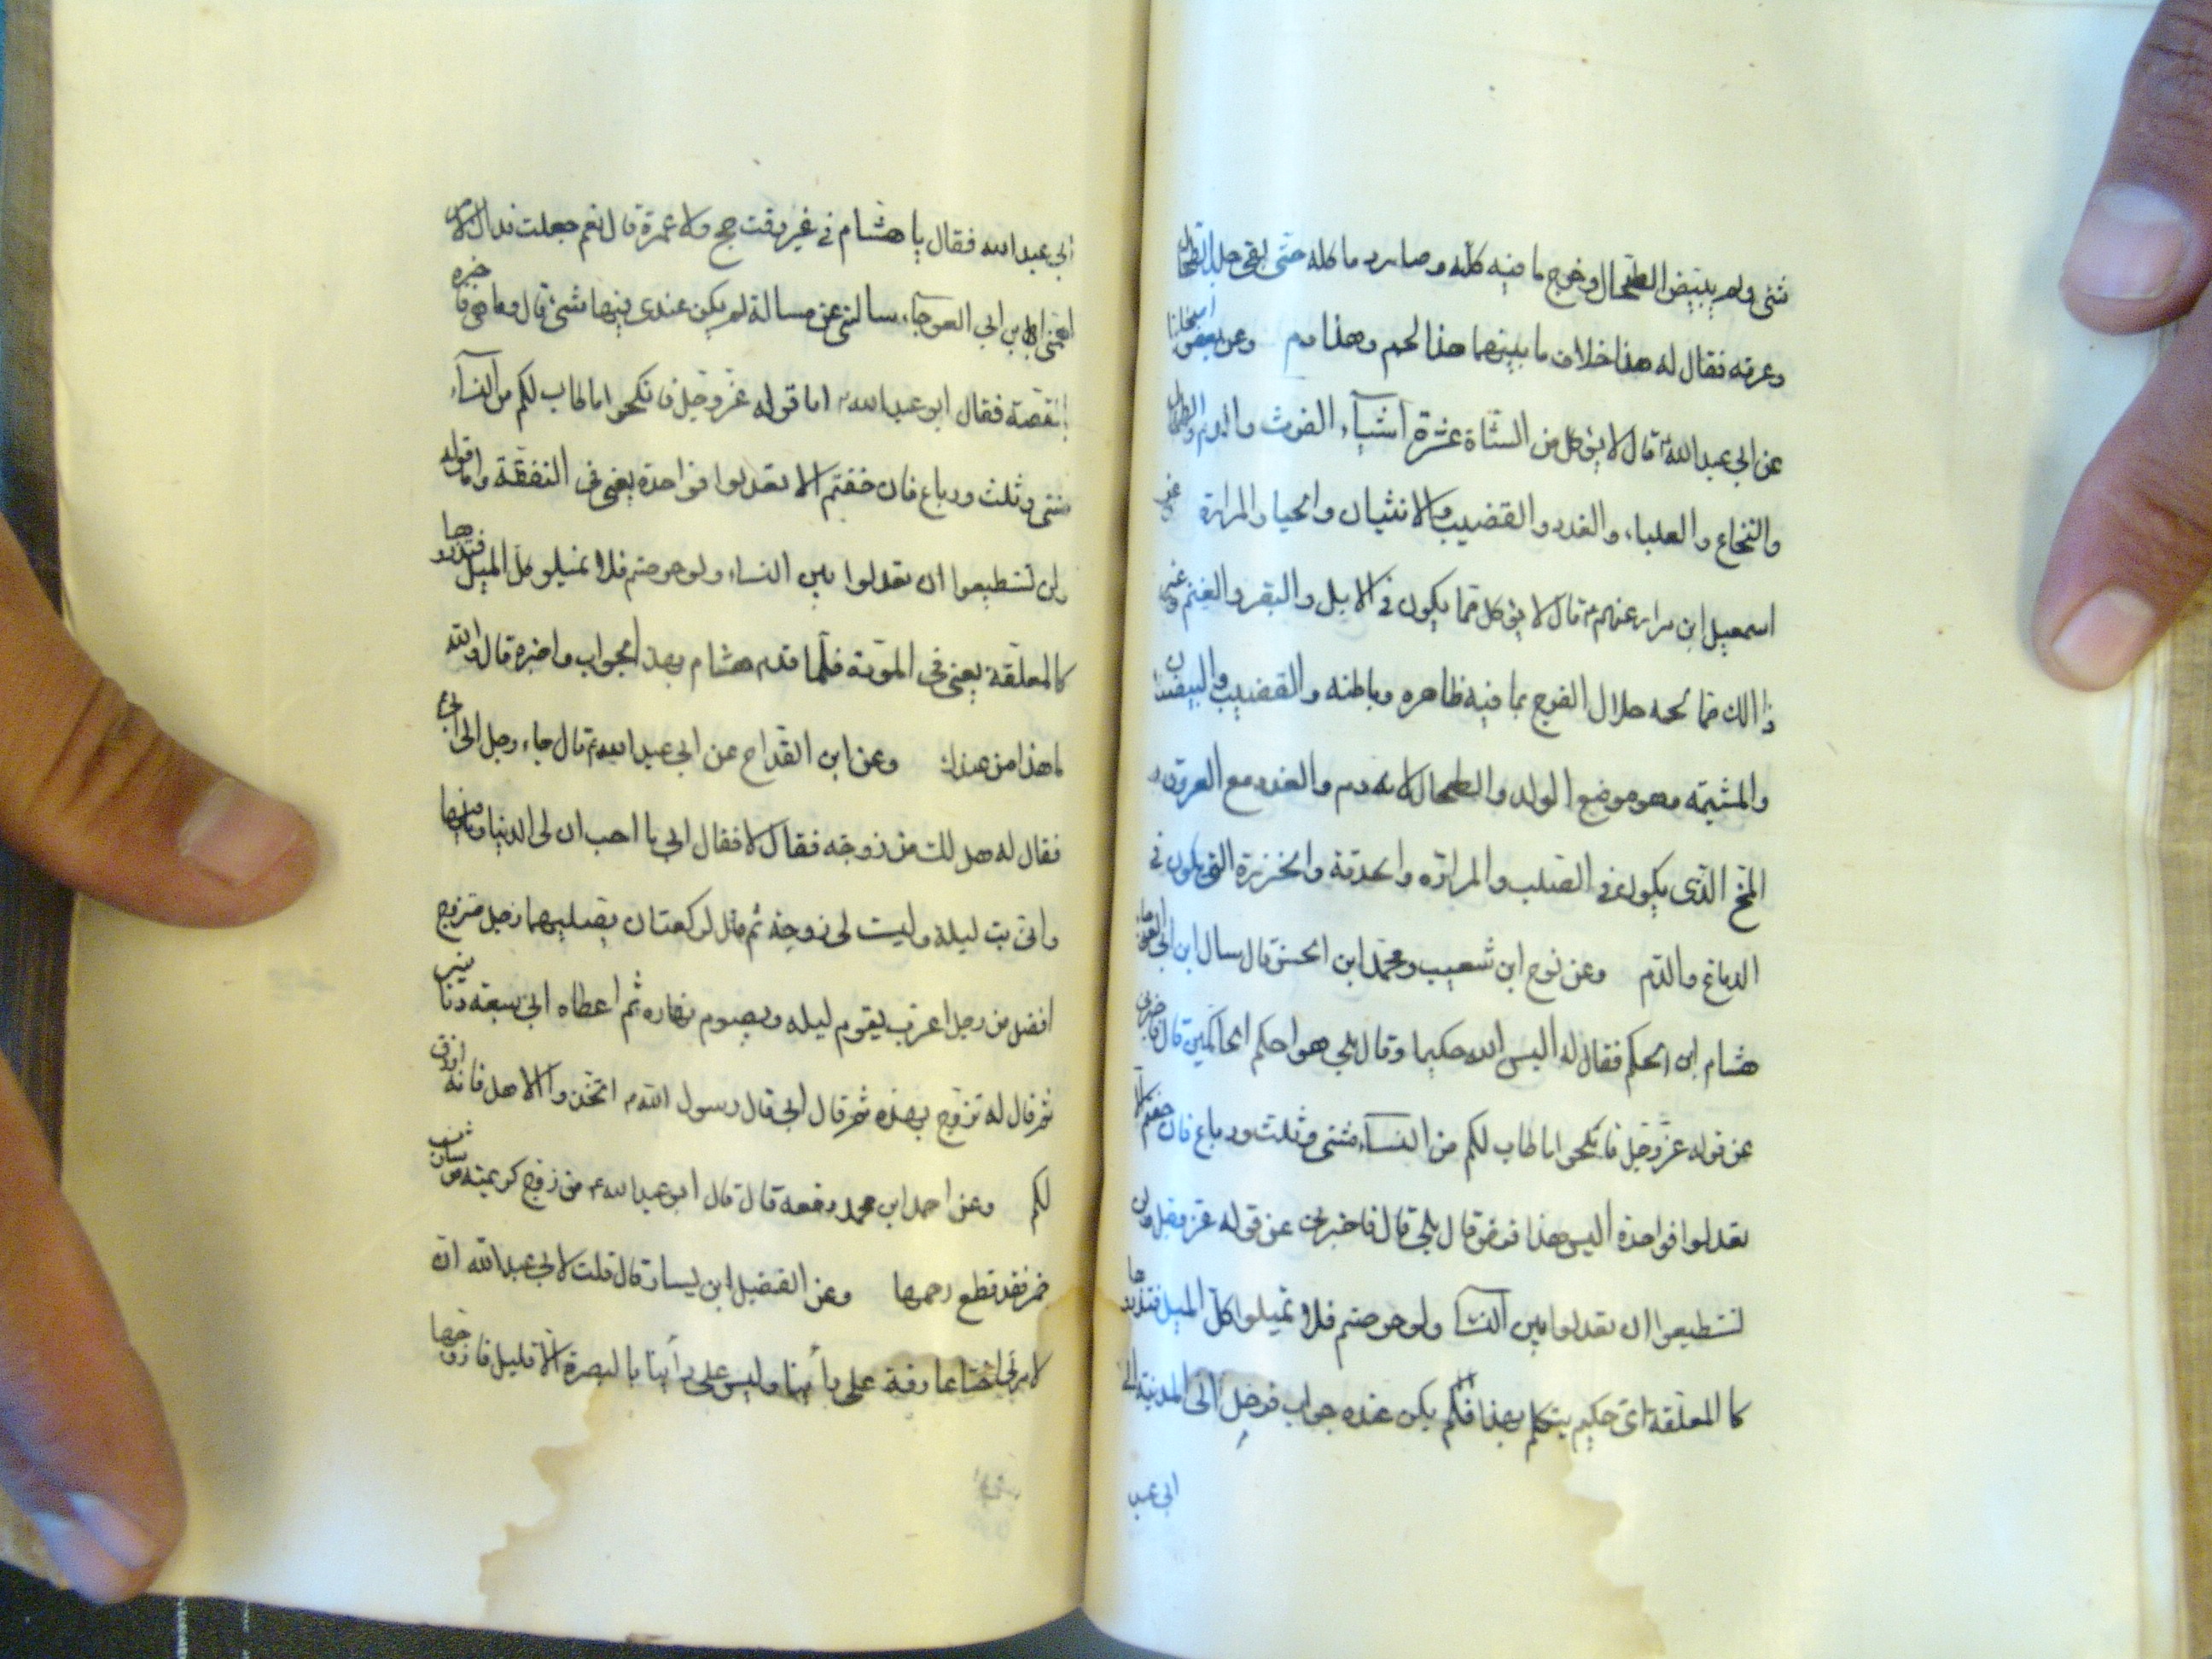 شئ ولم يبيض الطحال وخرج ما فيه كله وصار دما كله حتى بقى جلد الطحال
وعرقه فقال له هذا خلاف ما بينهما هذا لحم وهذا دم وعن بعض اصحابنا
عن ابى عبد الله ع قال لا يؤكل من الشاة عشرة اشياء الفرث والدم والطحال
والنخاع والعلباء والغدد والقضيب والانثيان والحيا والمرارة وعن
اسمعيل ابن مرار عنهم ع قال لا يؤكل مما يكون فى الابل والبقر والغنم وغير
ذالك مما لحمه حلال الفرج بما فيه ظاهره وباطنه والقضيب والبيضتان
والمشيمه وهو موضع الولد والطحال لانه دم والغدد مع العروق و
المخ الذى يكون فى الصلب والمرارة والحدقة والخرزة التى يكون فى
الدماغ والدم وعن نوح ابن شعيب ومحمد ابن الحسن قال سال ابن ابى العوجاء
هشام ابن الحكم فقال له اليس الله حكيما وقال بلى هو احكم الحاكمين قال فاخبرنى
عن قوله عز وجل فانكحوا ما طاب لكم من النساء مثنى وثلث ورباع فان خفتم الا
تعدلوا فواحدة اليس هذا فرض قال بلى قال فاخبرنى عن قوله عز وجل ولن
تستطيعوا ان تعدلوا بين النسا ولو حرصتم فلا تميلوا كل الميل فتذروها
كالمعلقة اى حكيم يتكلم بهذا فلم يكن عنده جواب فرحل الى المدينة الى
ابى عبد
ابى عبد الله فقال يا هشام فى غير وقت حج ولا عمرة قال نعم جعلت فداك لامر
اهمنى ان ابن ابى العوجاء سالنى عن مسالة لم يكن عندى فيها شئ قال وما هى فاخبره
بالقصة فقال ابو عبد الله ع اما قوله عز وجل فانكحوا ما طاب لكم من النساء
مثنى وثلث ورباع فان خفتم الا تعدلوا فواحدة يعنى فى النفقة واما قوله
ولن تستطيعوا ان تعدلوا بين النساء ولو حرصتم فلا تميلو كل الميل فتذروها
كالمعلقة يعنى فى المودة فلما قدم هشام بهذ الجواب واخبره قال والله
ما هذا من عندك وعن ابن القداح عن ابى عبد الله ع قال جاء رجل الى ابى ع
فقال له هل لك من زوجه فقال لا فقال ابى ما احب ان لى الدنيا وما فيها
وانى بت ليلة وليست لى زوجة ثم قال لركعتان يصليهما رجل متزوج
افضل من رجل اعزب يقوم ليله ويصوم نهاره ثم اعطاه ابى سبعه دنانير
ثم قال له تزوج بهذه ثم قال ابى قال رسول الله ص اتخذوا الاهل فانه ارزق
لكم وعن احمد ابن محمد رفعه قال قال ابو عبد الله ع من زوج كريمته من شارب
خمر فقد قطع رحمها وعن الفضيل ابن يسار قال قلت لابى عبد الله ان
لامرأتى اختا عارفة على رأينا وليس على رأينا بالبصرة الا قليل فازوجها